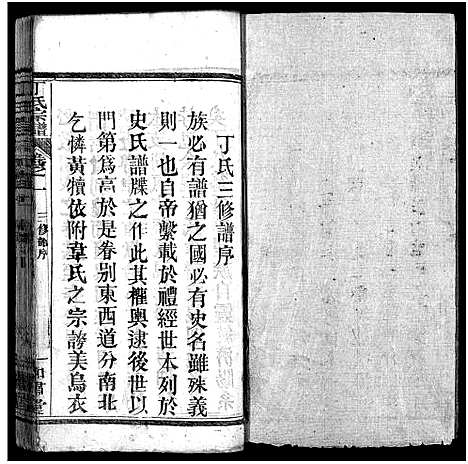 丁氏三修譜序
族必有譜猶之國必有史名雖殊義
則一也自帝繫載於禮經世本列於
史氏譜牒之作此其權輿逮後世以
門第爲高於是眷别東西道分南北
乞憐黃犢依附韋氏之宗謗美烏衣
丁氏宗譜
卷之一
三修譜序